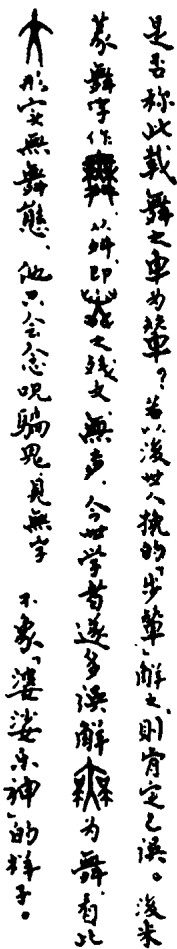 是否称此載舞之車为輦車？若以後世人挽的「步輦」解之，則肯定已誤。後来
篆舞字作，从舛，即之残文，無声，今世学者遂多误解为舞，看此
形实無舞態，他只会念呪騙鬼見無字　不象「婆娑乐神」的样子。